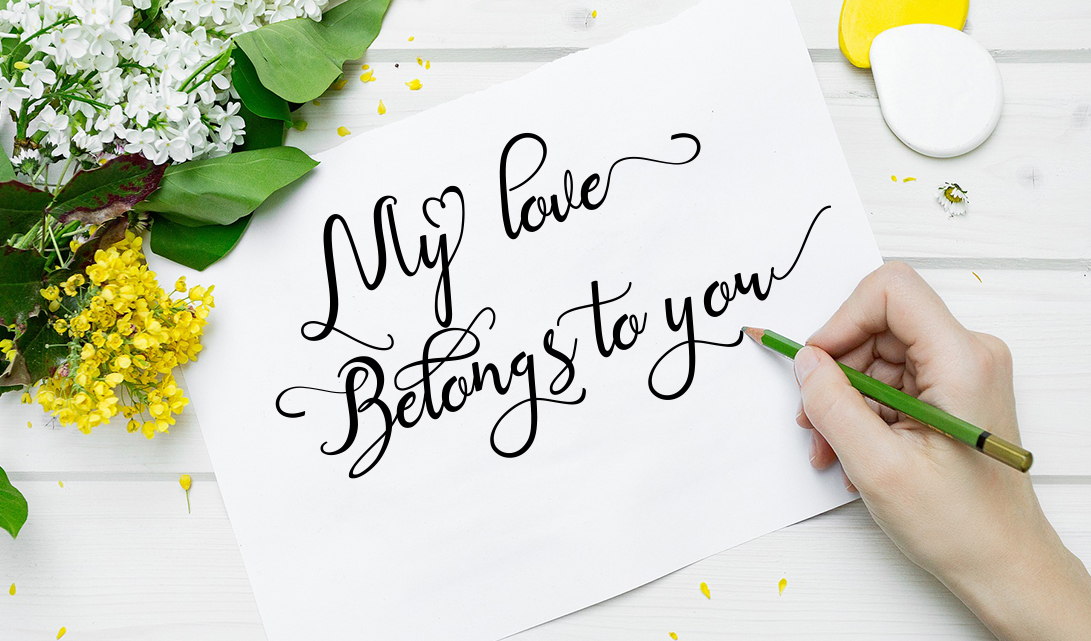 My love
Belongs to you